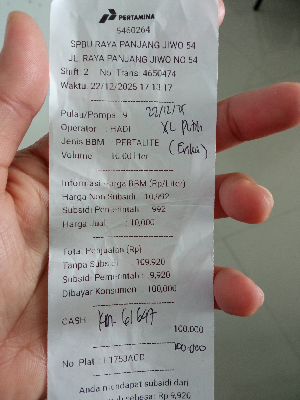 PERTAMINA
5460264
SPBU RAYA PANJANG JIWO 54
JL. RAYA PANJANG JIWO NO 54
Shift: 2 No. Trans: 4650474
Waktu: 22/12/2025 17:13:17
Pulau/Pompa : 9
22/12/25
Operator : HADI
XL Putih
Jenis BBM : PERTALITE
Volume : 10.00 Liter
Informasi Harga BBM (Rp/Liter)
Harga Non Subsidi : 10,992
Subsidi Pemerintah : 992
Harga Jual : 10,000
Total Penjualan (Rp)
Tanpa Subsidi : 109,920
Subsidi Pemerintah : 9,920
Dibayar Konsumen : 100,000
CASH
100.000
100.000
No. Plat :
Anda mendapat subsidi dari
sebesar Rp 9,920